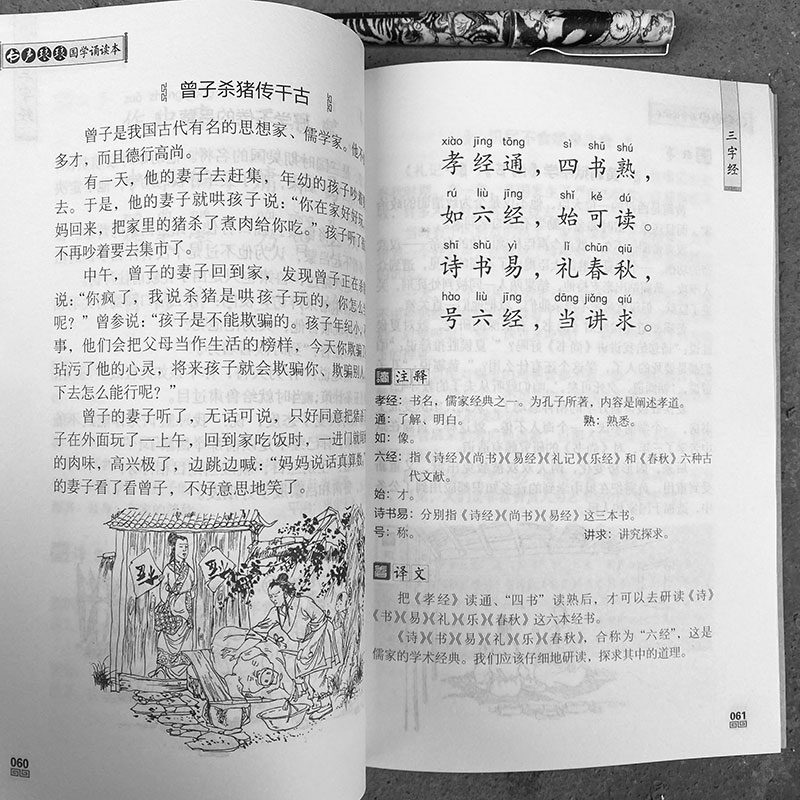 书声琅琅国学诵读本
曾子杀猪传千古
曾子是我国古代有名的思想家、儒学家。他
多才，而且德行高尚。
有一天，他的妻子去赶集，年幼的孩子吵着
去。于是，他的妻子就哄孩子说：“你在家好好玩
妈回来，把家里的猪杀了煮肉给你吃。”孩子听了
不再吵着要去集市了。
中午，曾子的妻子回到家，发现曾子正在
说：“你疯了，我说杀猪是哄孩子玩的，你怎么
呢？”曾参说：“孩子是不能欺骗的。孩子年纪小，
事，他们会把父母当作生活的榜样，今天你欺骗了
玷污了他的心灵，将来孩子就会欺骗你、欺骗别人
下去怎么能行呢？”
曾子的妻子听了，无话可说，只好同意把猪
子在外面玩了一上午，回到家吃饭时，一进门就
的肉味，高兴极了，边跳边喊：“妈妈说话真算数
的妻子看了看曾子，不好意思地笑了。
060
三字经
xiào jīng tōng sì shū shú
孝经通，四书熟，
rú liù jīng shǐ kě dú
如六经，始可读。
shī shū yì lǐ chūn qiū
诗书易，礼春秋，
hào liù jīng dāng jiǎng qiú
号六经，当讲求。
注释
孝经：书名，儒家经典之一。为孔子所著，内容是阐述孝道。
通：了解、明白。 熟：熟悉。
如：像。
六经：指《诗经》《尚书》《易经》《礼记》《乐经》和《春秋》六种古
代文献。
始：才。
诗书易：分别指《诗经》《尚书》《易经》这三本书。
号：称。 讲求：讲究探求。
译文
把《孝经》读通、“四书”读熟后，才可以去研读《诗》
《书》《易》《礼》《乐》《春秋》这六本经书。
《诗》《书》《易》《礼》《乐》《春秋》，合称为“六经”，这是
儒家的学术经典。我们应该仔细地研读，探求其中的道理。
061